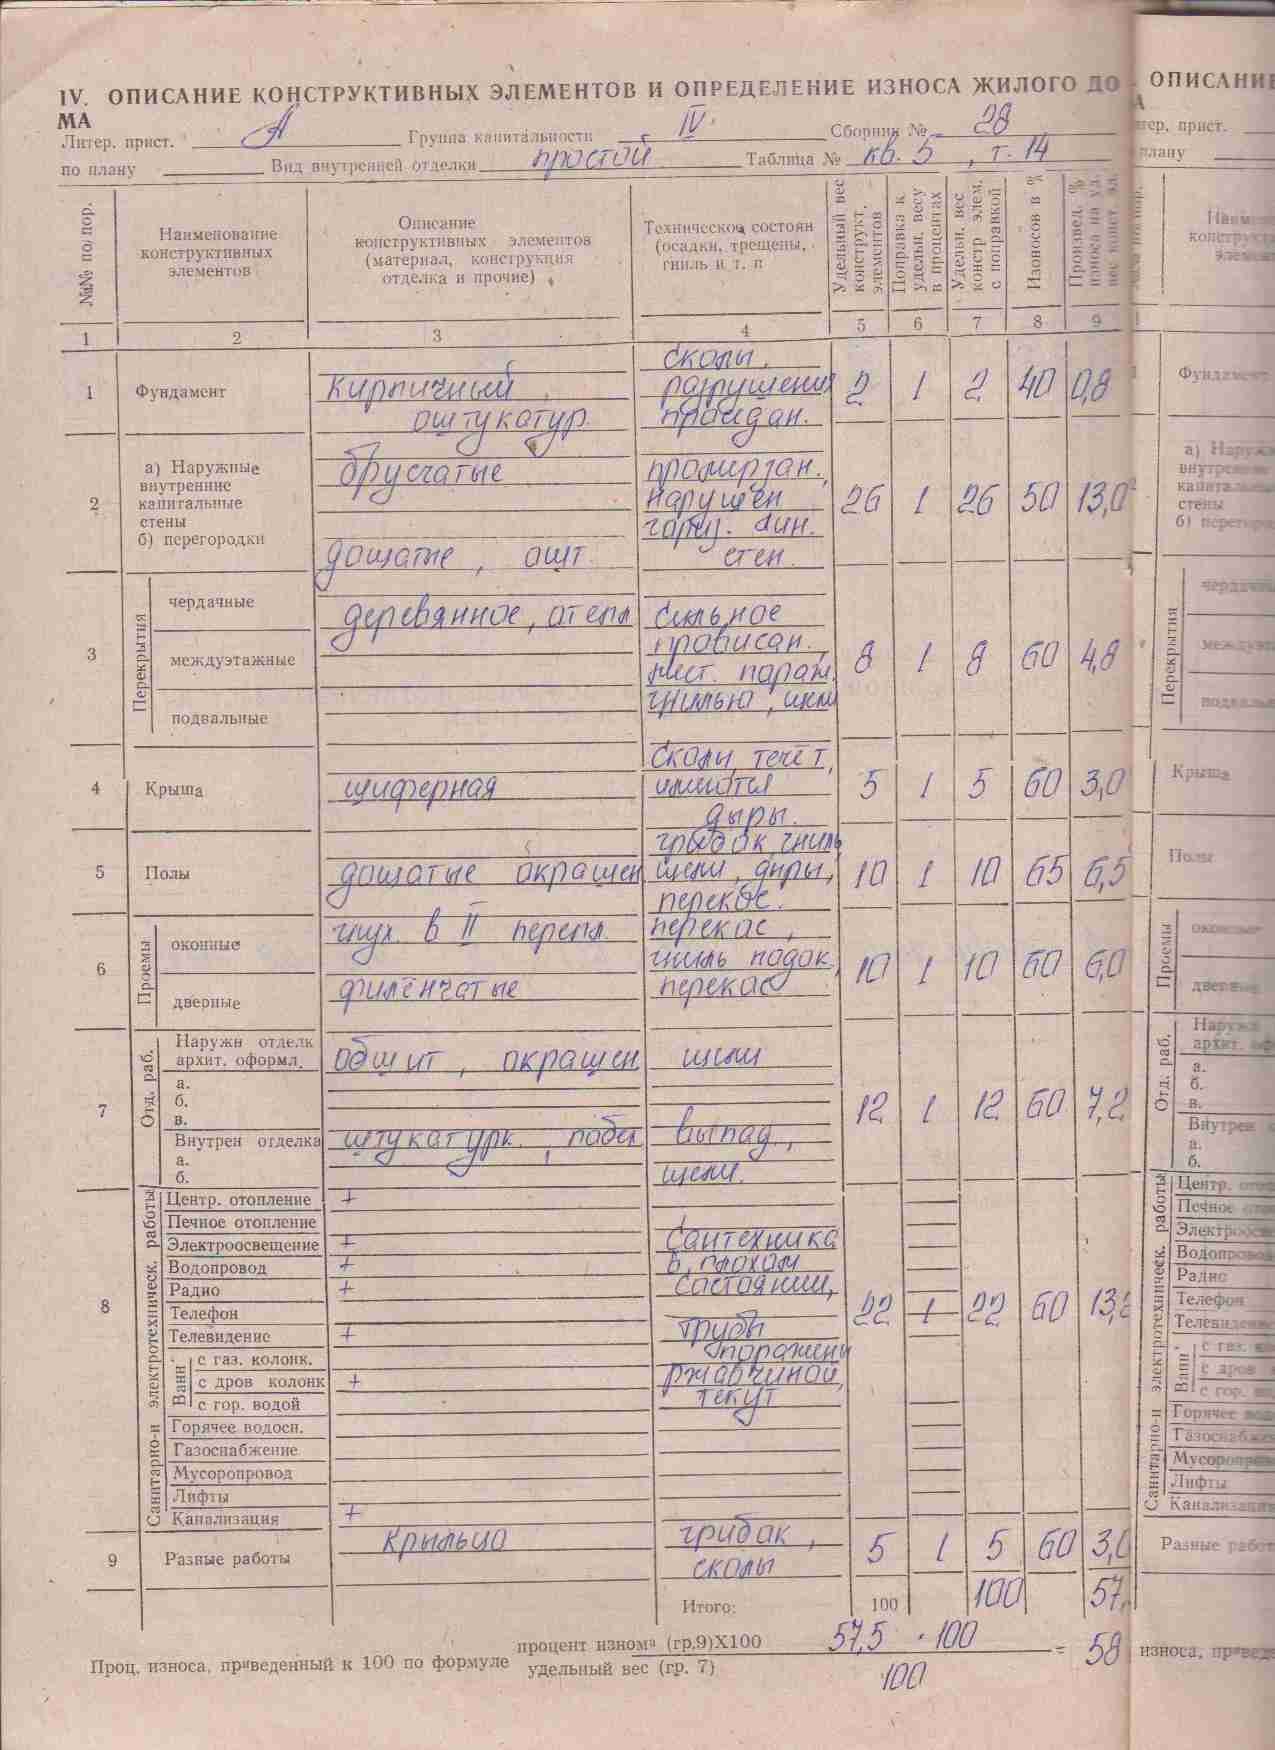 IV. ОПИСАНИЕ КОНСТРУКТИВНЫХ ЭЛЕМЕНТОВ И ОПРЕДЕЛЕНИЕ ИЗНОСА ЖИЛОГО ДО
МА
Литер. прист. А Группа капитальности IV Сборник № 28
по плану Вид внутренней отделки простой Таблица № кв. 5, т. 14
№№ по/пор.
Наименование
конструктивных
элементов
Описание
конструктивных элементов
(материал, конструкция
отделка и прочие)
Техническое состоян
(осадки, трещены,
гниль и т. п
Удельный вес
конструкт.
элементов
Поправка к
удельн. весу
в процентах
Удельн. вес
констр элем.
с поправкой
Изоносов в %
Произвед. %
износа на уд.
вес конст эл.
1 2 3 4 5 6 7 8 9
сколы,
1 Фундамент кирпичный, разрушения 2 1 2 40 0,8
оштукатур.
а) Наружные брусчатые промерзан.,
внутренние
2 капитальные нарушен 26 1 26 50 13,0
стены
б) перегородки
дощатые, ошт. стен.
Перекрытия
чердачные деревянное, отепл сильное
провисан.,
3 междуэтажные 8 1 8 60 4,8
подвальные гнилью, щели
сколы, течёт,
4 Крыша шиферная имеются 5 1 5 60 3,0
дыры.
грибок, гниль
5 Полы дощатые окрашен щели, дыры, 10 1 10 65 6,5
перекос.
Проемы
оконные глух. в II перепл. перекос,
6 гниль подок. 10 1 10 60 6,0
дверные филёнчатые перекос
Отд. раб.
Наружн отделк
архит. оформл. обшит, окрашен щели
а.
б.
7 в. 12 1 12 60 7,2
Внутрен отделка штукатурк., побел выпад.,
а.
б. щели.
Санитарно-и электротехническ. работы
Центр. отопление +
Печное отопление
Электроосвещение + Сантехника
Водопровод + в плохом
Радио + состоянии,
8 Телефон 22 1 22 60 13,2
Телевидение + трубы
поражены
Ванн
с газ. колонк.
с дров колонк + ржавчиной,
с гор. водой текут
Горячее водосн.
Газоснабжение
Мусоропровод
Лифты
Канализация +
9 Разные работы крыльцо грибок, 5 1 5 60 3,0
сколы
Итого: 100 100 57,
Проц. износа, приведенный к 100 по формуле процент износа (гр.9)Х100
удельный вес (гр. 7)
57,5 · 100
100
= 58
ОПИСАНИЕ
А
тер. прист.
плану
Фундамент
стены
б) перегор
Перекрытия
Крыша
Полы
Проемы
Отд. раб.
архит. оф
а.
б.
в.
а.
б.
Санитарно-и электротехническ. работы
Центр.
Печное
Водопровод
Радио
Телефон
Ванн
с гор. водой
Лифты
Канализация
износа, приведе